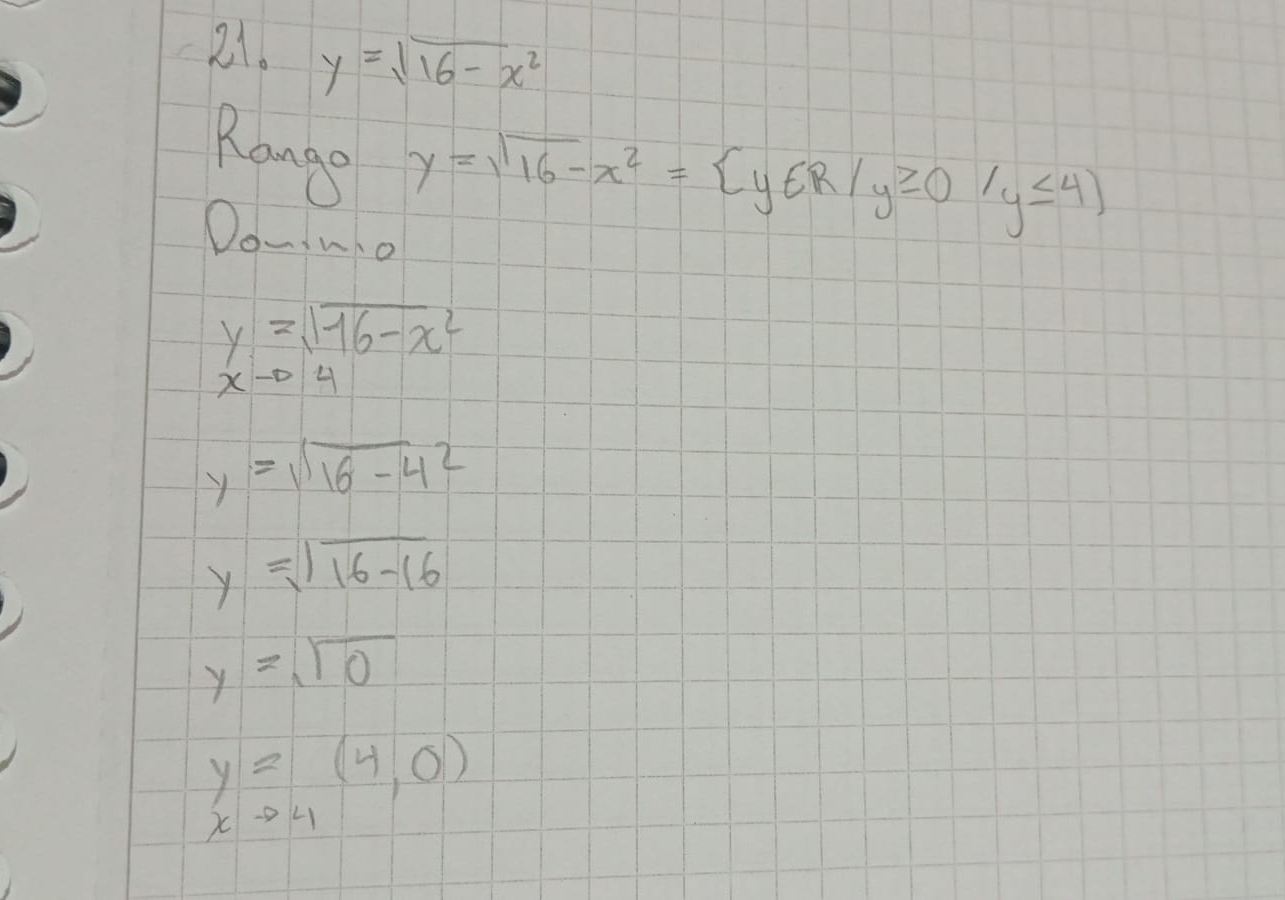 21. y = √16 - x²
Rango y = √16 - x² = {y ∈ R / y ≥ 0 / y ≤ 4}
Dominio
y = √16 - x²
x → 4
y = √16 - 4²
y = √16 - 16
y = √0
y = (4, 0)
x → 4